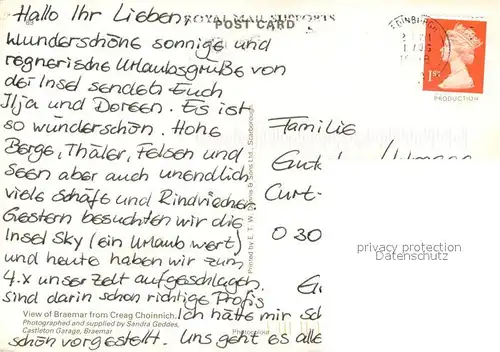 Hallo Ihr Lieben,
ROYAL MAIL SUPPORTS
POST CARD
wunderschöne sonnige und
regnerische Urlaubsgrüße von
der Insel senden Euch
Ilja und Doreen. Es ist
so wunderschön. Hohe
Berge, Thäler, Felsen und
Seen aber auch unendlich
viele Schafe und Rindviecher.
Gestern besuchten wir die
Insel Sky (ein Urlaub wert)
und heute haben wir zum
4.x unser Zelt aufgeschlagen.
Sind darin schon richtige Profis
View of Braemar from Creag Choinnich.
Ich hätte mir
Photographed and supplied by Sandra Geddes,
Castleton Garage, Braemar
schön vorgestellt. Uns geht es alle
Printed by E. T. W. Dennis & Sons Ltd., Scarborough
EDINBURGH
1ST
PRODUCTION
Familie
Curt-
O 30
privacy protection
Datenschutz